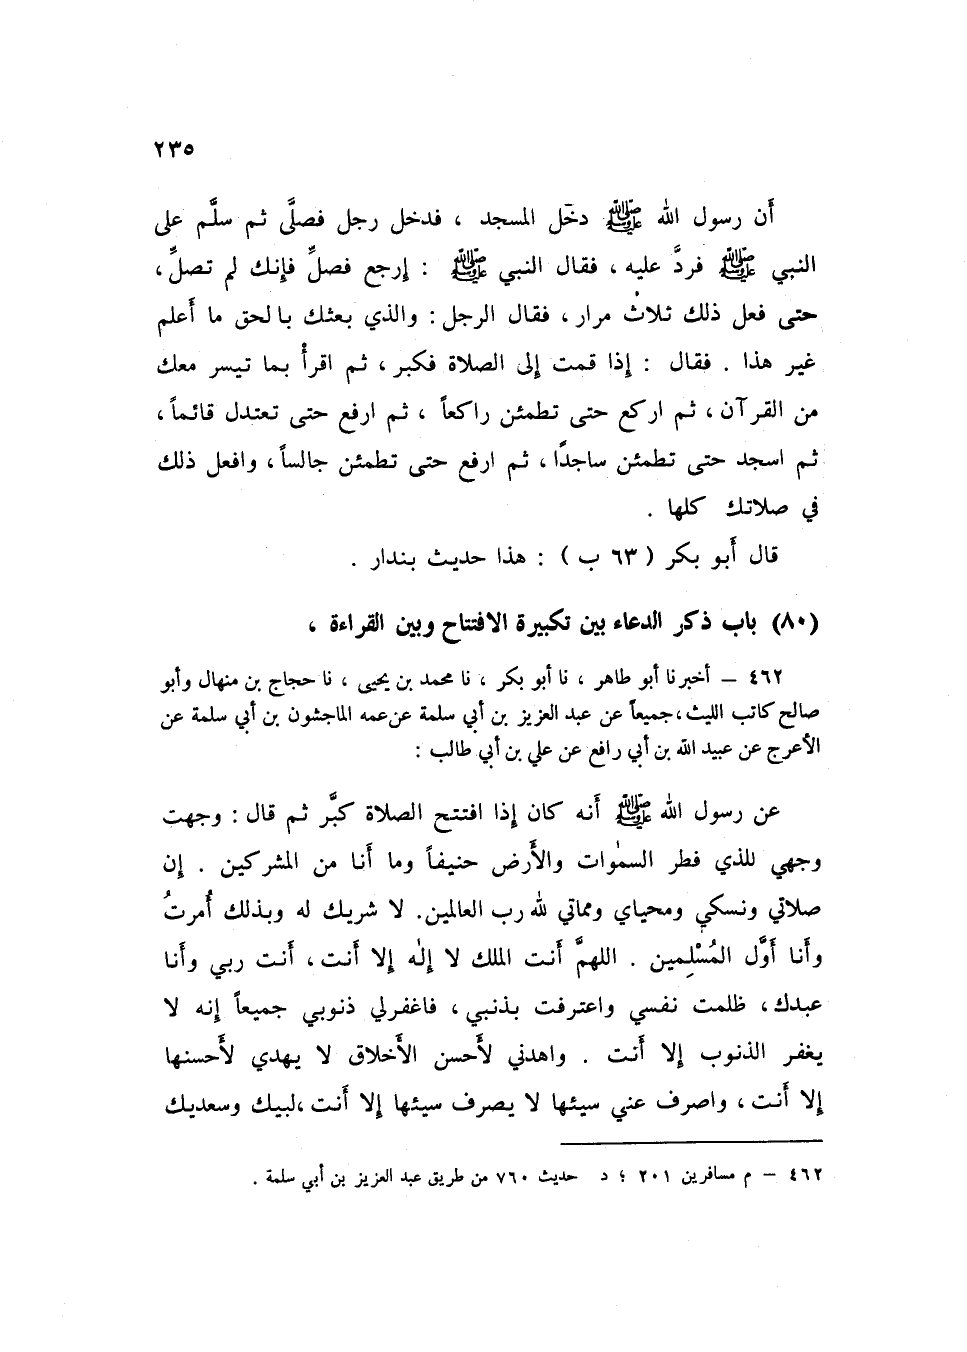 ٢٣٥
أن رسول الله ﷺ دخل المسجد ، فدخل رجل فصلَّى ثم سلَّم على
النبي ﷺ فردَّ عليه ، فقال النبي ﷺ : إرجع فصلِّ فإنك لم تصلِّ ،
حتى فعل ذلك ثلاث مرار ، فقال الرجل : والذي بعثك بالحق ما أعلم
غير هذا . فقال : إذا قمت إلى الصلاة فكبر ، ثم اقرأ بما تيسر معك
من القرآن ، ثم اركع حتى تطمئن راكعاً ، ثم ارفع حتى تعتدل قائماً ،
ثم اسجد حتى تطمئن ساجدًا ، ثم ارفع حتى تطمئن جالساً ، وافعل ذلك
في صلاتك كلها .
قال أبو بكر ( ٦٣ ب ) : هذا حديث بندار .
(٨٠) باب ذكر الدعاء بين تكبيرة الافتتاح وبين القراءة ،
٤٦٢ – أخبرنا أبو طاهر ، نا أبو بكر ، نا محمد بن يحيى ، نا حجاج بن منهال وأبو
صالح كاتب الليث ، جميعاً عن عبد العزيز بن أبي سلمة عن عمه الماجشون بن أبي سلمة عن
الأعرج عن عبيد الله بن أبي رافع عن علي بن أبي طالب :
عن رسول الله ﷺ أنه كان إذا افتتح الصلاة كبَّر ثم قال : وجهت
وجهي للذي فطر السمٰوات والأرض حنيفاً وما أنا من المشركين . إن
صلاتي ونسكي ومحياي ومماتي لله رب العالمين . لا شريك له وبذلك أُمرتُ
وأنا أوَّل المُسْلِمين . اللهمَّ أنت الملك لا إلٰه إلا أنت ، أنت ربي وأنا
عبدك ، ظلمت نفسي واعترفت بذنبي ، فاغفرلي ذنوبي جميعاً إنه لا
يغفر الذنوب إلا أنت . واهدني لأحسن الأخلاق لا يهدي لأحسنها
إلا أنت ، واصرف عني سيئها لا يصرف سيئها إلا أنت ، لبيك وسعديك
٤٦٢ – م مسافرين ٢٠١ ؛ د حديث ٧٦٠ من طريق عبد العزيز بن أبي سلمة .